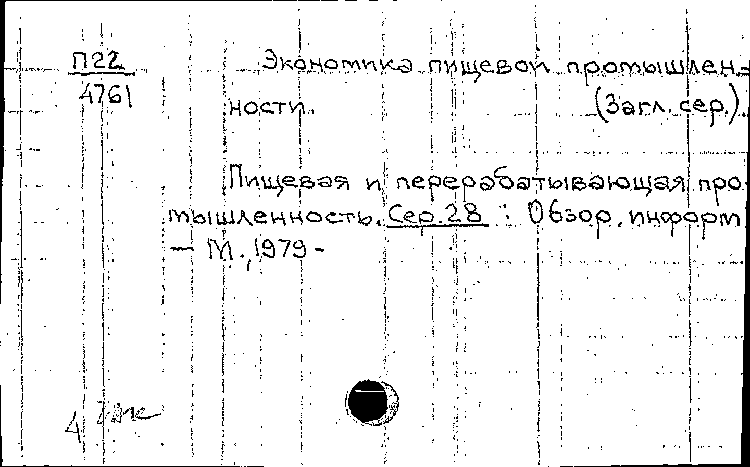 П22
4761
Экономика пищевой промышлен-
ности. (Загл. сер.).
Пищевая и перерабатывающая про
мышленность. Сер. 28 : Обзор. информ
— М., 1979 -
4